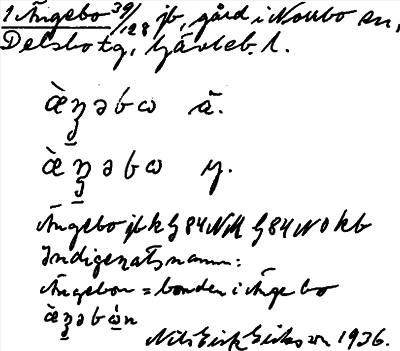 1 Ängebo 39/128 jb, gård i Norrbo sn,
Delsbo tg, Gävleb. l.
æ̀ŋəbω ä.
æ̀ŋəbω y.
Ängebo jbk G 84 NM G 84 NO kb
Indigenatsnamn:
Ängebon = bonden i Änge bo
æ̀ŋəbὼn
Nils Erik Eriksson 1936.